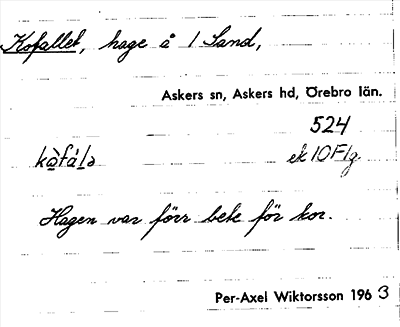 Kofallet, hage å 1 Sand,
Askers sn, Askers hd, Örebro län.
524
kòfál̲ə ek 10F1g
Hagen var förr bete för kor.
Per-Axel Wiktorsson 1963